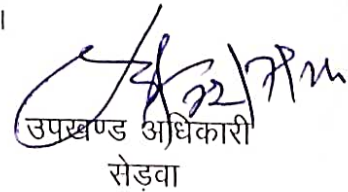 उपखण्ड अधिकारी
सेड़वा